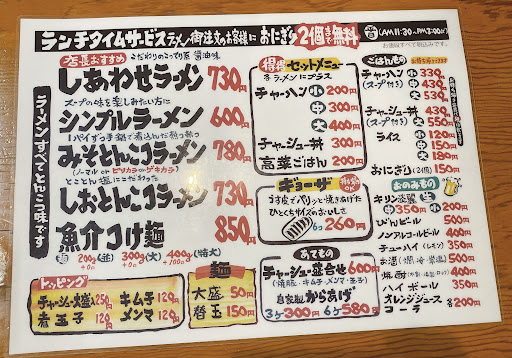 ランチタイムサービス ラーメン御注文のお客様に おにぎり2個まで無料 (AM11:30~PM3:00)
お値段すべて税込みです。
ラーメンすべてとんこつ味です
店長おすすめ こだわりのこってり系 醤油味
しあわせラーメン 730円
スープの味を楽しみたい方に
シンプルラーメン 600円
みそとんこつラーメン 780円
(ノーマル or ピリカラ or ゲキカラ)
とことん塩にこだわった
しおとんこつラーメン 730円
魚介つけ麺 850円
麺 200g(並) +0円 300g(大) +0円 400g(特大) +100円
トッピング
チャーシュー大盛 250円 キムチ 120円
煮玉子 120円 メンマ 120円
麺
大盛 50円
替玉 150円
得得 セットメニュー
各ラーメンにプラス
チャーハン 小 200円
中 300円
大 400円
チャーシュー丼 300円
高菜ごはん 200円
ギョーザ
うす皮でパリッと焼きあげた
ひとくちサイズのおいしさ
6コ 260円
あてもの
チャーシュー盛合せ 600円
自家製 からあげ
3ヶ 300円 6ヶ 580円
ごはんもの
チャーハン 小 330円
(スープ付き) 中 430円
大 530円
チャーシュー丼 430円
(スープ付き) 大 550円
ライス 小 120円
中 150円
大 180円
おにぎり(2個) 150円
おのみもの
キリン 生
中 350円 小 200円
いびんビール 500円
ノンアルコールビール 400円
チューハイ(レモン) 350円
お酒(燗・冷・常温) 400円
焼酎 400円
ハイボール 350円
オレンジジュース
コーラ 各200円